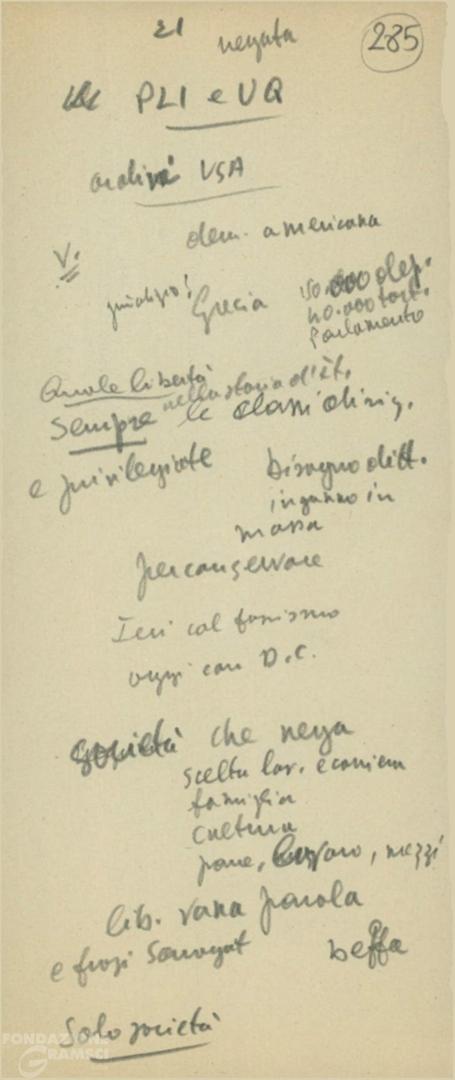 El negata
285
PLI e UQ
ordini USA
dem. americana
V.
Grecia
10.000 dep.
40.000 tort.
parlamento
Quale libertà
nella storia d'It.
Sempre le classi dirig.
e privilegiate
bisogno ditt.
inganno in
massa
per conservare
Ieri col fascismo
oggi con D.C.
società che nega
scelta lav. e carriera
famiglia
cultura
pane, lavoro, mezzi
lib. vana parola
e frasi Saragat
beffa
Solo società
FONDAZIONE
GRAMSCI